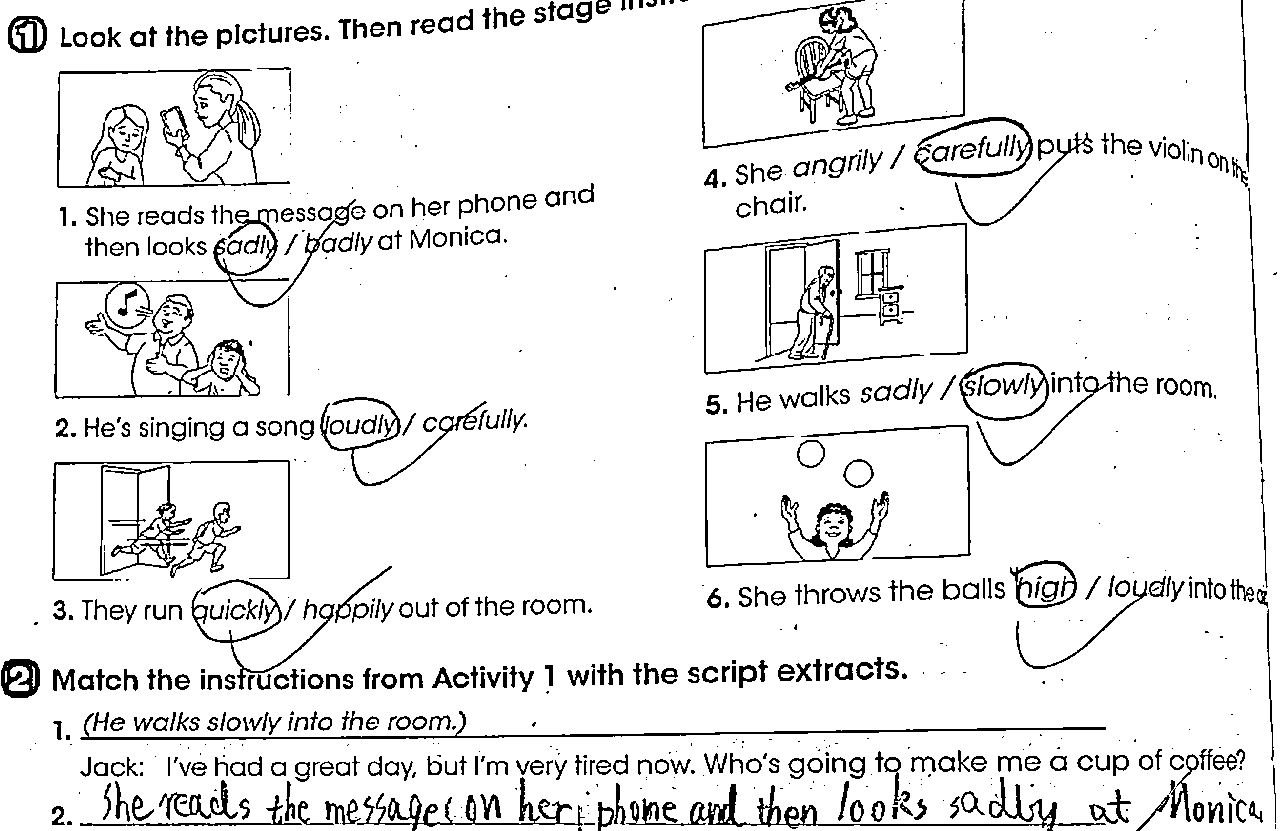 1 Look at the pictures. Then read the stage
1. She reads the message on her phone and
then looks sadly / badly at Monica.
2. He's singing a song loudly / carefully.
3. They run quickly / happily out of the room.
4. She angrily / carefully puts the violin on the
chair.
5. He walks sadly / slowly into the room.
6. She throws the balls high / loudly into the
2 Match the instructions from Activity 1 with the script extracts.
1. (He walks slowly into the room.)
Jack: I've had a great day, but I'm very tired now. Who's going to make me a cup of coffee?
2. She reads the messages on her phone and then looks sadly at Monica